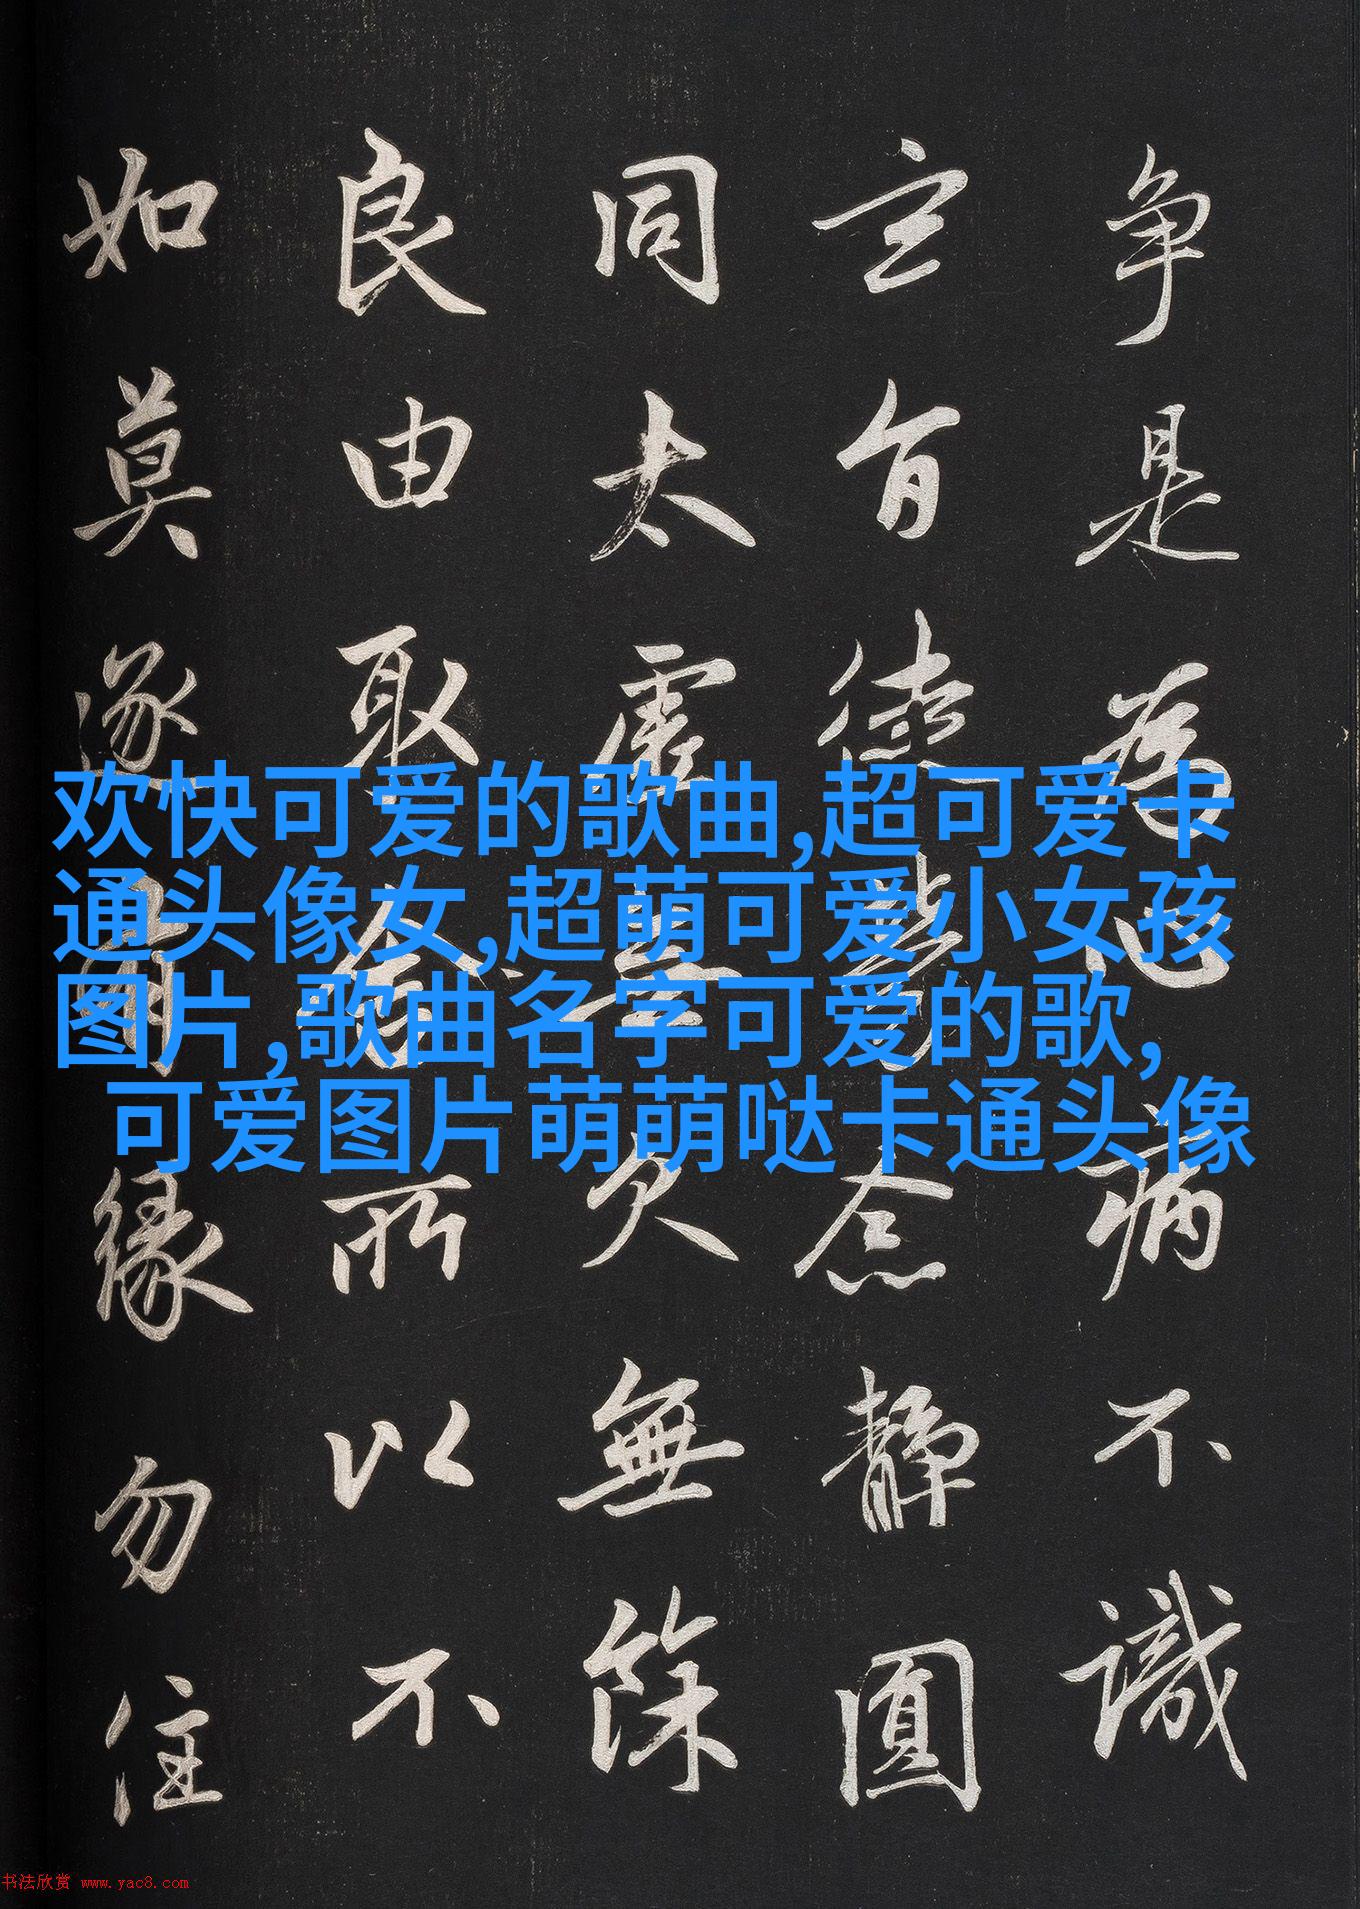 争是為心病不識
玄旨徒勞念靜圓
同太虛無欠無餘
良由取舍所以不
如莫逐有緣勿住
欢快可爱的歌曲,超可爱卡
通头像女,超萌可爱小女孩
图片,歌曲名字可爱的歌,
可爱图片萌萌哒卡通头像
书法欣赏 www.yac8.com